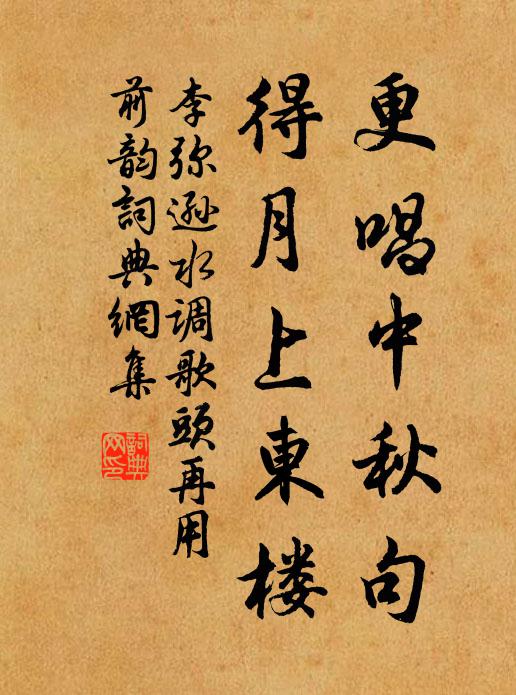 更唱中秋句
得月上東楼
李弥遜水调歌頭再用
前韵詞典網集
詞典
网印